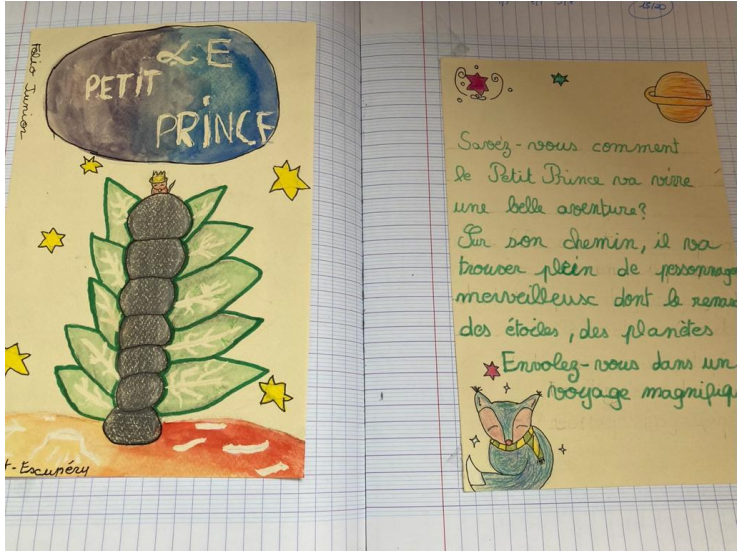 Folio Junior
LE
PETIT
PRINCE
t-Escupéry
15/20
Savéz-vous comment
le Petit Prince va vivre
une belle aventure?
Sur son chemin, il va
trouver plein de personnag
merveilleux dont le renar
des étoiles, des planètes
Envolez-vous dans un
voyage magnifiq